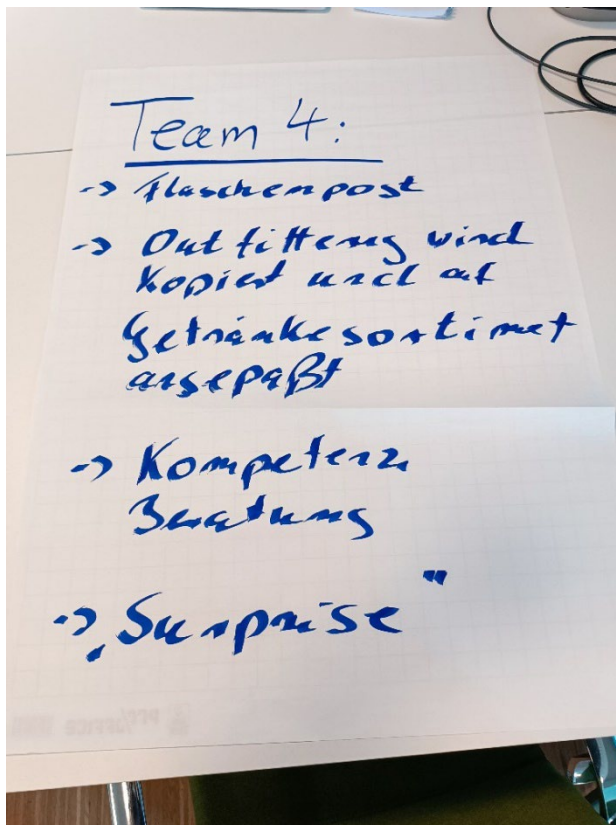 Team 4:
-> Flaschenpost
-> Outfittery wird
kopiert und auf
Getränkesortiment
angepaßt
-> Kompetenz
Beratung
-> „Surprise"